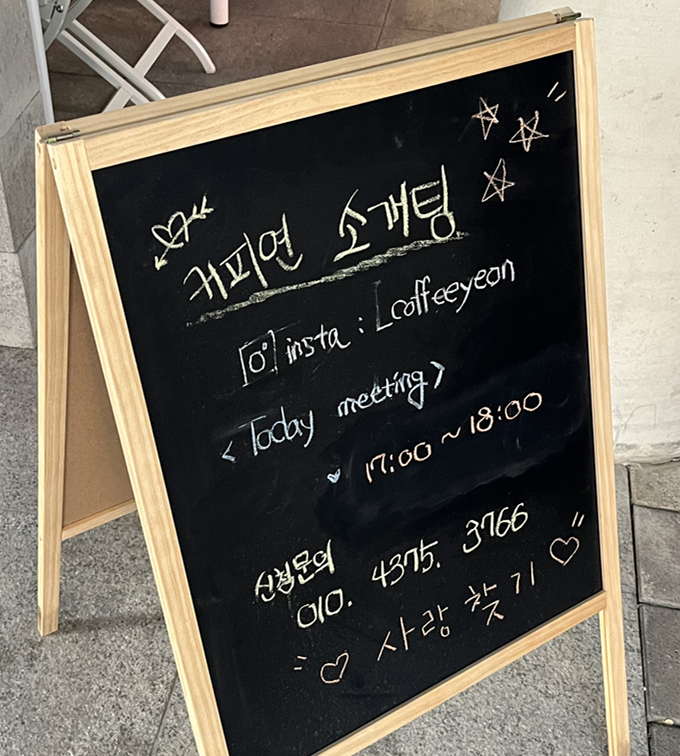 커피연 소개팅
insta : coffeeyeon
<Today meeting>
17:00 ~ 18:00
신청문의
010. 4375. 3766
사랑 찾기